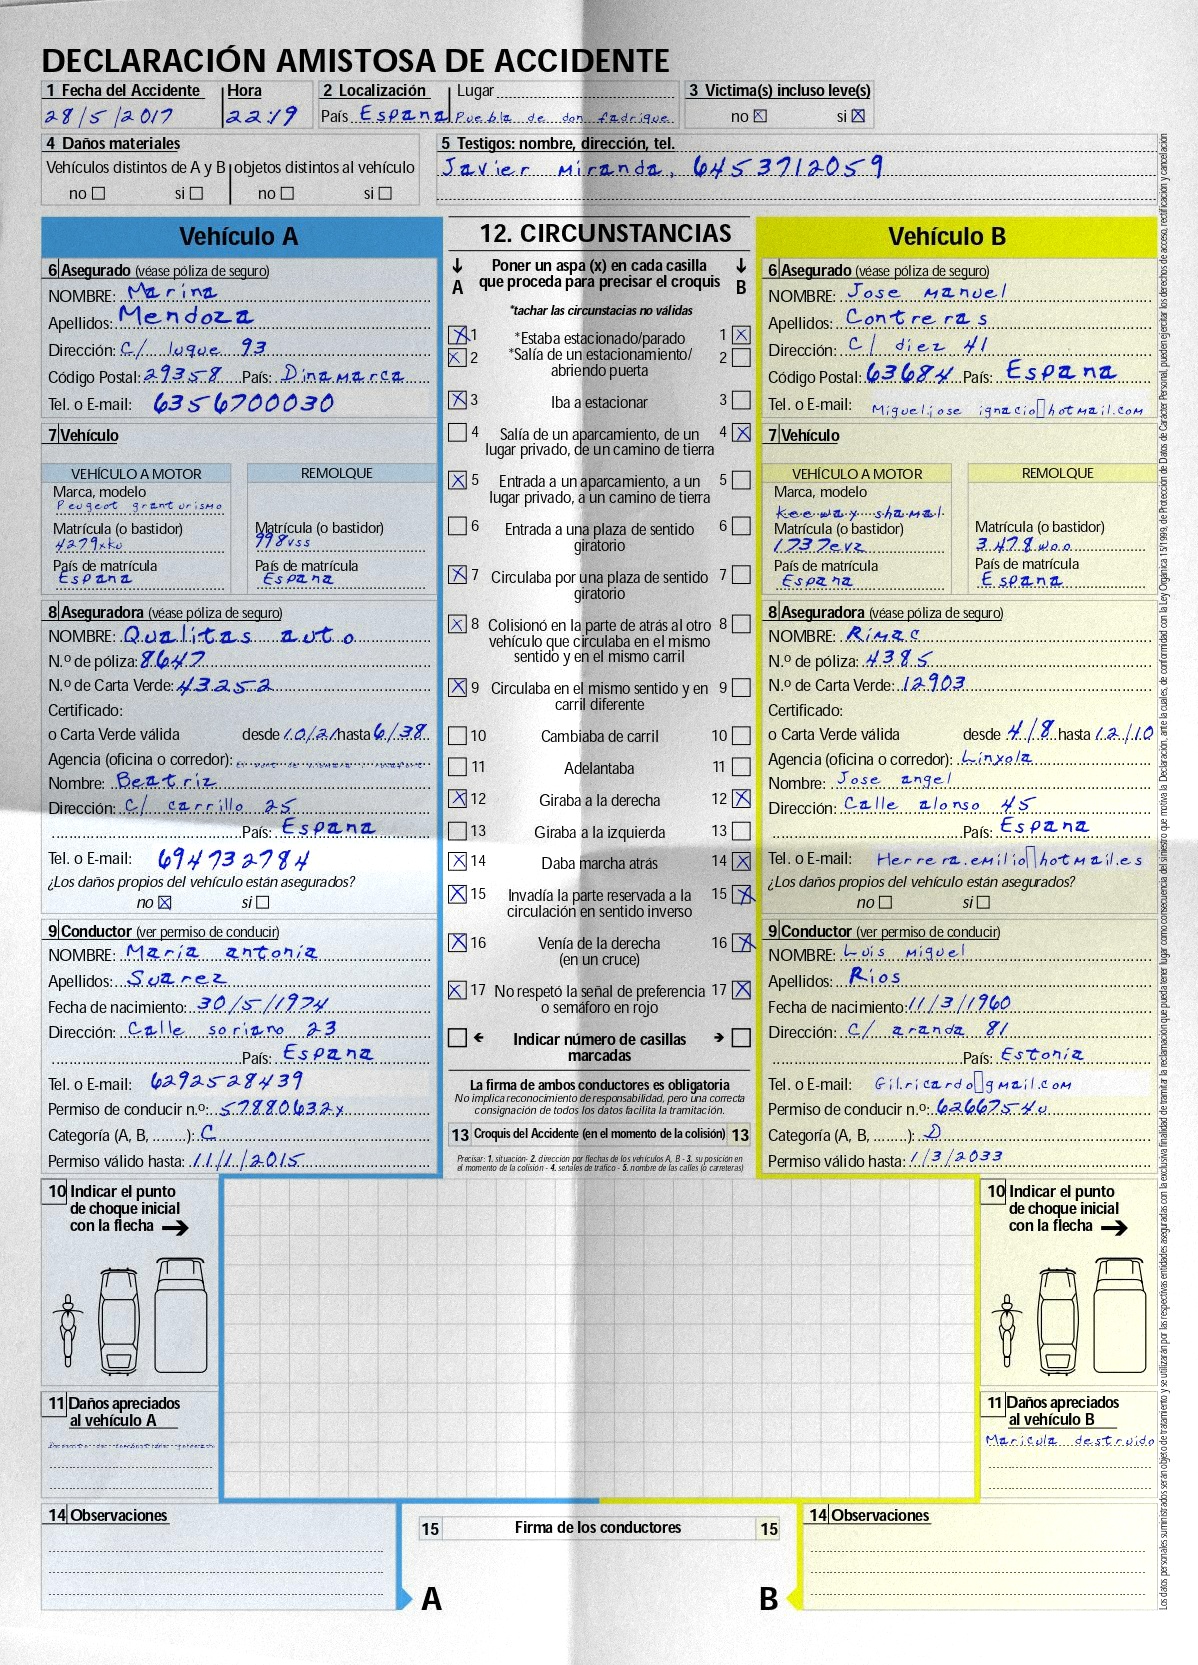 DECLARACIÓN AMISTOSA DE ACCIDENTE
1 Fecha del Accidente Hora 2 Localización Lugar 3 Victima(s) incluso leve(s)
28/5/2017 22:19 País Espana Puebla de don fadrique no ☒ si ☒
4 Daños materiales 5 Testigos: nombre, dirección, tel.
Vehículos distintos de A y B objetos distintos al vehículo Javier Miranda, 6453712059
no ☐ si ☐ no ☐ si ☐
Vehículo A
6 Asegurado (véase póliza de seguro)
NOMBRE: Marina
Apellidos: Mendoza
Dirección: C/ luque 93
Código Postal: 29358 País: Dinamarca
Tel. o E-mail: 6356700030
7 Vehículo
VEHÍCULO A MOTOR REMOLQUE
Marca, modelo
Peugeot granturismo
Matrícula (o bastidor) Matrícula (o bastidor)
4279xku 998vss
País de matrícula País de matrícula
Espana Espana
8 Aseguradora (véase póliza de seguro)
NOMBRE: Qualitas auto
N.º de póliza: 8647
N.º de Carta Verde: 43252
Certificado:
o Carta Verde válida desde 10/21 hasta 6/38
Agencia (oficina o corredor):
Nombre: Beatriz
Dirección: C/ carrillo 25
País: Espana
Tel. o E-mail: 694732784
¿Los daños propios del vehículo están asegurados?
no ☒ si ☐
9 Conductor (ver permiso de conducir)
NOMBRE: María antonia
Apellidos: Suarez
Fecha de nacimiento: 30/5/1974
Dirección: Calle soriano 23
País: Espana
Tel. o E-mail: 6292528439
Permiso de conducir n.º: 57880632x
Categoría (A, B, ........): C
Permiso válido hasta: 11/1/2015
12. CIRCUNSTANCIAS
Poner un aspa (x) en cada casilla
A que proceda para precisar el croquis B
*tachar las circunstacias no válidas
☒ 1 *Estaba estacionado/parado 1 ☒
☒ 2 *Salía de un estacionamiento/ 2 ☐
abriendo puerta
☒ 3 Iba a estacionar 3 ☐
☐ 4 Salía de un aparcamiento, de un 4 ☒
lugar privado, de un camino de tierra
☒ 5 Entrada a un aparcamiento, a un 5 ☐
lugar privado, a un camino de tierra
☐ 6 Entrada a una plaza de sentido 6 ☐
giratorio
☒ 7 Circulaba por una plaza de sentido 7 ☐
giratorio
☒ 8 Colisionó en la parte de atrás al otro 8 ☐
vehículo que circulaba en el mismo
sentido y en el mismo carril
☒ 9 Circulaba en el mismo sentido y en 9 ☐
carril diferente
☐ 10 Cambiaba de carril 10 ☐
☐ 11 Adelantaba 11 ☐
☒ 12 Giraba a la derecha 12 ☒
☐ 13 Giraba a la izquierda 13 ☐
☒ 14 Daba marcha atrás 14 ☒
☒ 15 Invadía la parte reservada a la 15 ☒
circulación en sentido inverso
☒ 16 Venía de la derecha 16 ☒
(en un cruce)
☒ 17 No respetó la señal de preferencia 17 ☒
o semáforo en rojo
☐ ← Indicar número de casillas → ☐
marcadas
La firma de ambos conductores es obligatoria
No implica reconocimiento de responsabilidad, pero una correcta
consignación de todos los datos facilita la tramitación.
13 Croquis del Accidente (en el momento de la colisión) 13
Precisar: 1. situación- 2. dirección por flechas de los vehículos A, B - 3. su posición en
el momento de la colisión - 4. señales de tráfico - 5. nombre de las calles (o carreteras)
Vehículo B
6 Asegurado (véase póliza de seguro)
NOMBRE: Jose manuel
Apellidos: Contreras
Dirección: C/ diez 41
Código Postal: 63684 País: Espana
Tel. o E-mail: Migueljose ignacio▯hotmail.com
7 Vehículo
VEHÍCULO A MOTOR REMOLQUE
Marca, modelo
keeway shamal
Matrícula (o bastidor) Matrícula (o bastidor)
1737evz 3478woo
País de matrícula País de matrícula
Espana Espana
8 Aseguradora (véase póliza de seguro)
NOMBRE: Rimac
N.º de póliza: 4385
N.º de Carta Verde: 12903
Certificado:
o Carta Verde válida desde 4/8 hasta 12/10
Agencia (oficina o corredor): Linxola
Nombre: Jose angel
Dirección: Calle alonso 45
País: Espana
Tel. o E-mail: Herrera.emilio▯hotmail.es
¿Los daños propios del vehículo están asegurados?
no ☐ si ☐
9 Conductor (ver permiso de conducir)
NOMBRE: Luis miguel
Apellidos: Rios
Fecha de nacimiento: 11/3/1960
Dirección: C/ aranda 81
País: Estonia
Tel. o E-mail: Gilricardo▯gmail.com
Permiso de conducir n.º: 6266754u
Categoría (A, B, ........): D
Permiso válido hasta: 1/3/2033
10 Indicar el punto
de choque inicial
con la flecha →
11 Daños apreciados
al vehículo A
10 Indicar el punto
de choque inicial
con la flecha →
11 Daños apreciados
al vehículo B
Maricula destruido
14 Observaciones
15 Firma de los conductores 15
A B
14 Observaciones
Los datos personales suministrados seran objeto de tratamiento y se utilizaran por las respectivas entidades aseguradas con la exclusiva finalidad de tramitar la reclamación que pueda tener lugar como consecuencia del siniestro que motiva la Declaración, ante la cuales, de conformidad con la Ley Organica 15/1999, de Protección de Datos de Carácter Personal, pueden ejercitar los derechos de acceso, rectificación y cancelación